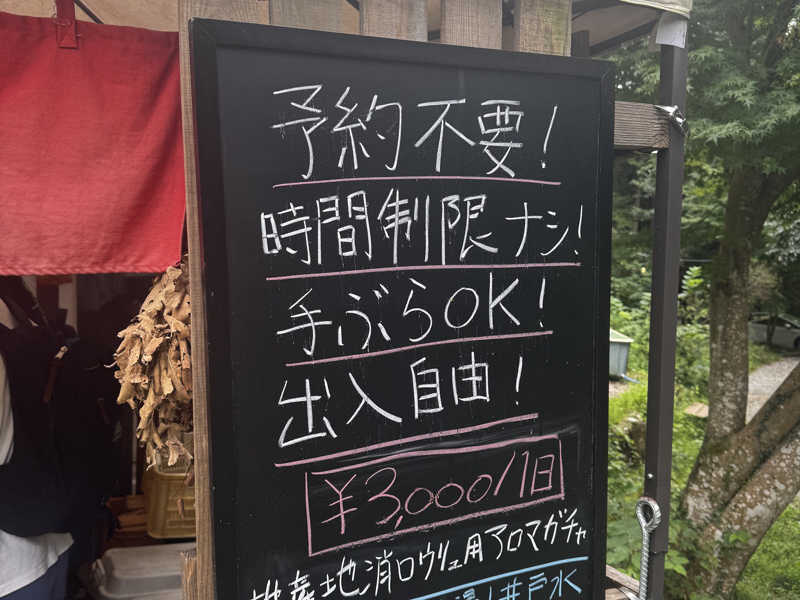 予約不要!
時間制限ナシ!
手ぶらOK!
出入自由!
¥3,000/1日
地産地消ロウリュ用アロマガチャ
井戸水